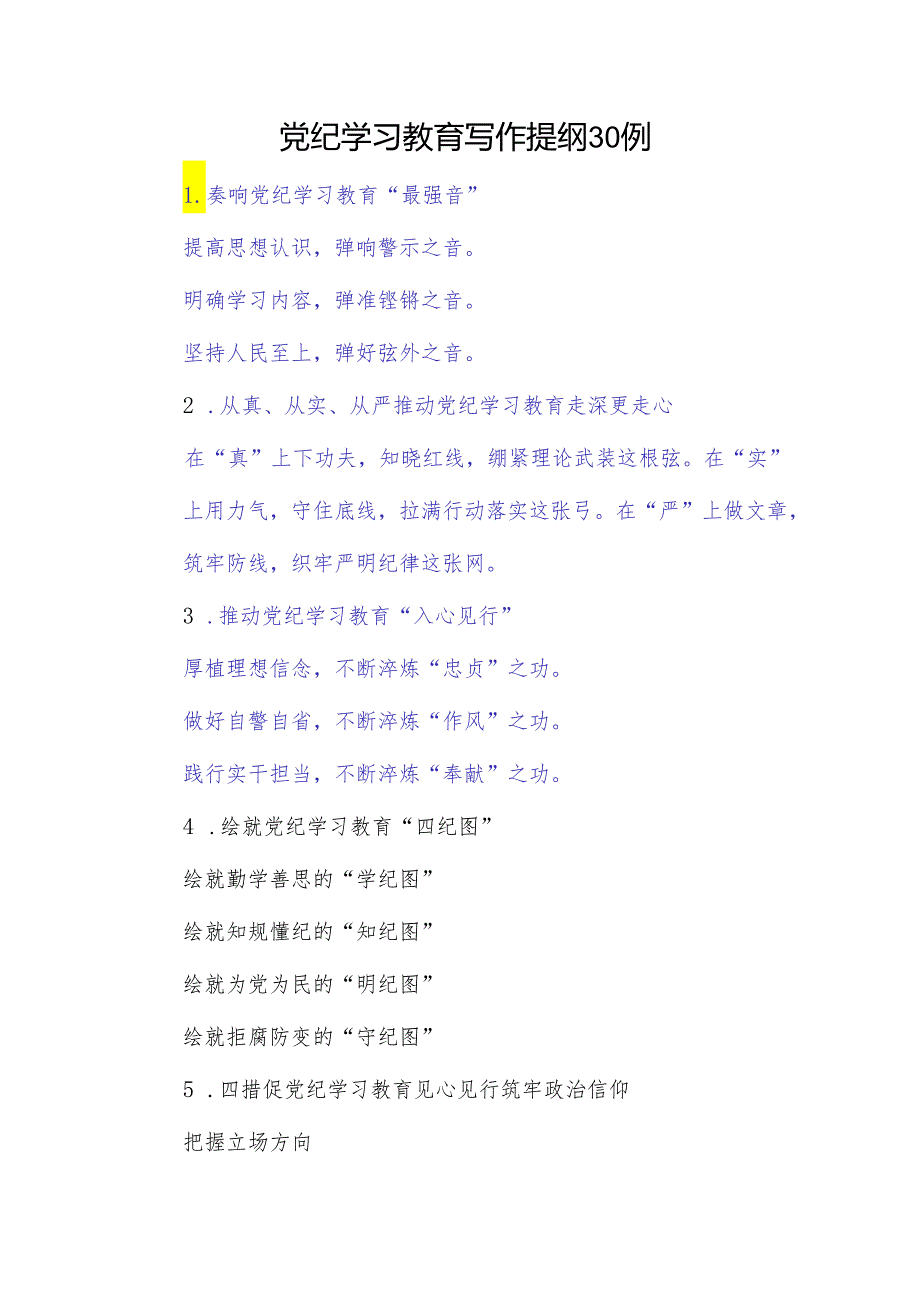 党纪学习教育写作提纲30例
1.奏响党纪学习教育“最强音”
提高思想认识，弹响警示之音。
明确学习内容，弹准铿锵之音。
坚持人民至上，弹好弦外之音。
2 .从真、从实、从严推动党纪学习教育走深更走心
在“真”上下功夫，知晓红线，绷紧理论武装这根弦。在“实”
上用力气，守住底线，拉满行动落实这张弓。在“严”上做文章，
筑牢防线，织牢严明纪律这张网。
3 .推动党纪学习教育“入心见行”
厚植理想信念，不断淬炼“忠贞”之功。
做好自警自省，不断淬炼“作风”之功。
践行实干担当，不断淬炼“奉献”之功。
4 .绘就党纪学习教育“四纪图”
绘就勤学善思的“学纪图”
绘就知规懂纪的“知纪图”
绘就为党为民的“明纪图”
绘就拒腐防变的“守纪图”
5 .四措促党纪学习教育见心见行筑牢政治信仰
把握立场方向